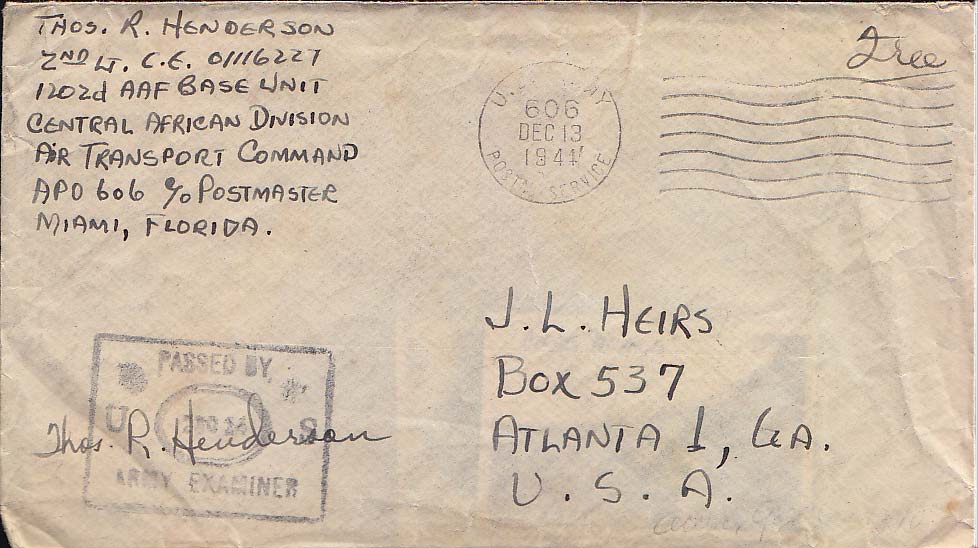 THOS. R. HENDERSON
2ND LT. C.E. 01116227
1202d AAF BASE UNIT
CENTRAL AFRICAN DIVISION
AIR TRANSPORT COMMAND
APO 606 c/o POSTMASTER
MIAMI, FLORIDA.
Free
U.
606
DEC 13
1944
POSTAL SERVICE
J. L. HEIRS
BOX 537
ATLANTA 1, GA.
U. S. A.
PASSED BY
U S
Thos. R. Henderson
ARMY EXAMINER